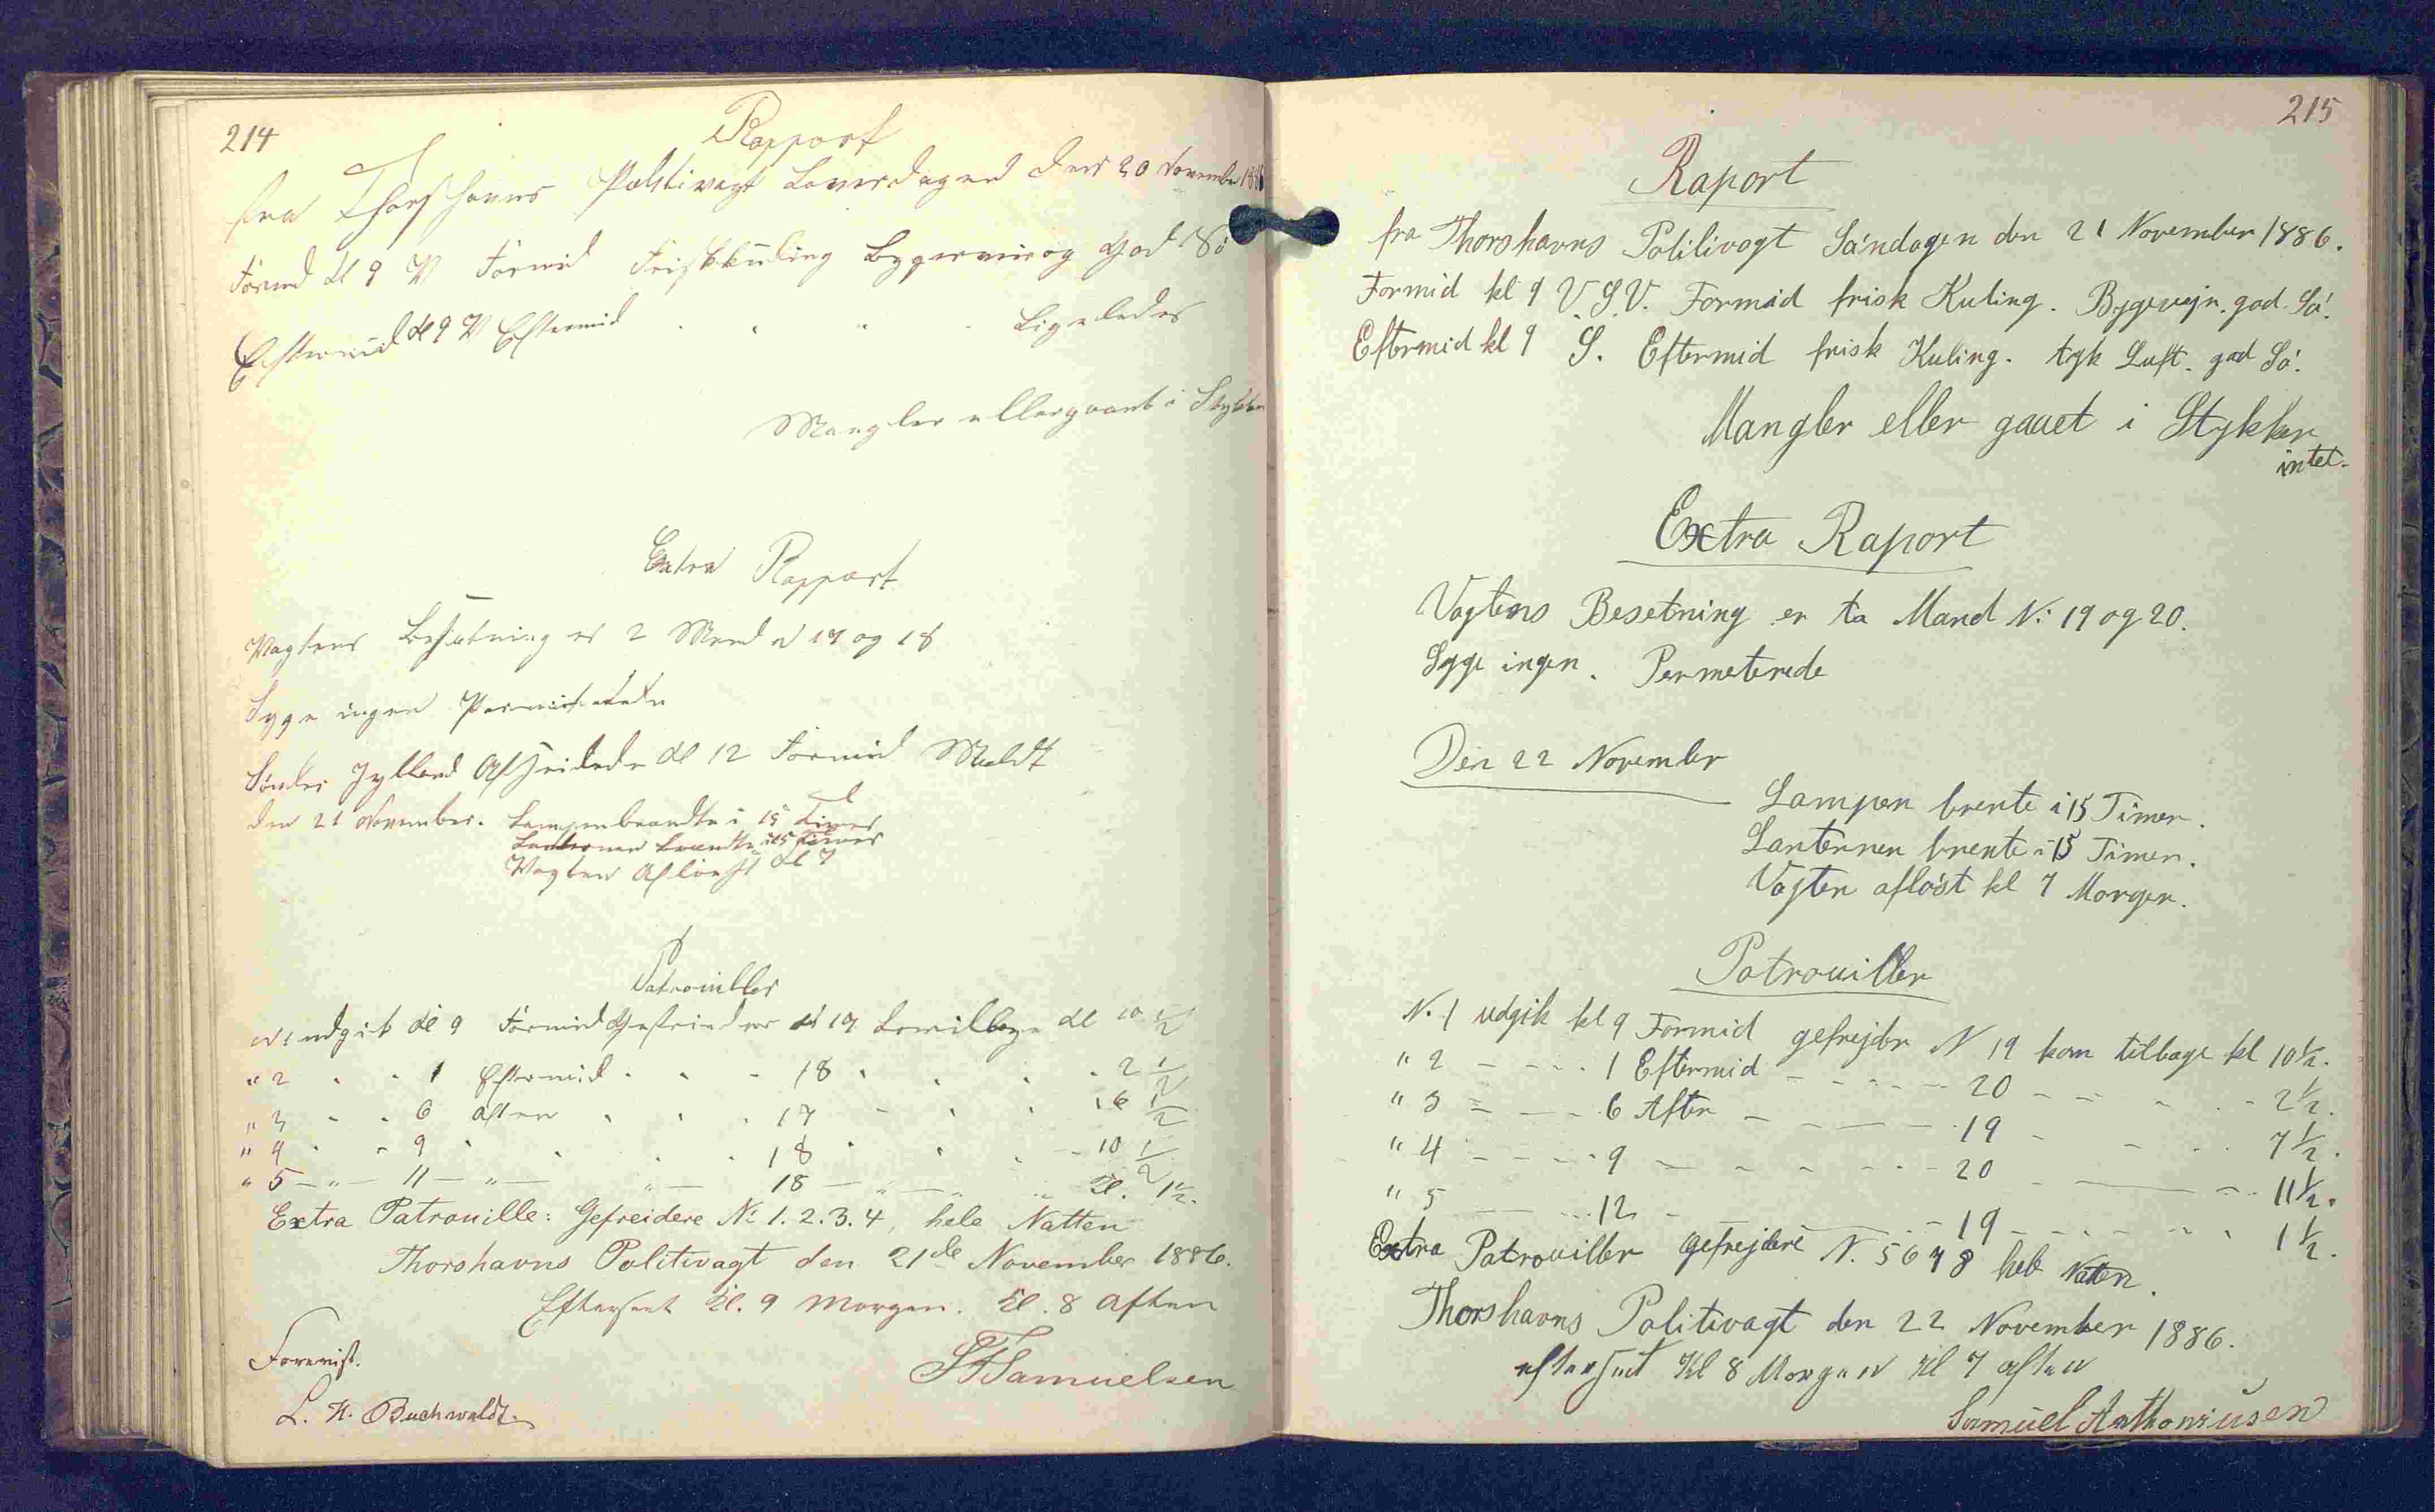 214
Rapport
fra Thorshavns Politivagt Loverdagen den 20 November 1886
Formd Kl 9 V Formid Frisk kuling Bygerveir og God Sö
Eftermid Kl 9 V Eftermid " " " Ligeledes
Mangler eller gaaet i Stykker
Extra Rapport
Vagtens Besætning er 2 Mand N 17 og 18
Syge ingen Permiterede
Sönder Jylland Afseilede Kl 12 Formid
den 21 November. Lampen brændte i 15 Timer
Lanternen brændte i 15 Timer
Vagten Aflöest Kl 7
Patrouiller
N 1 udgik Kl 9 Formid Gefreider N 17 kom tilbage Kl 10 1/2
" 2 " " 1 Eftermid " " " 18 " " " " 2 1/2
" 3 " " 6 Aften " " " 17 " " " " 6 1/2
" 4 " " 9 " " " " 18 " " " " 10 1/2
" 5 — " — 11 — " — " — 18 — " — " " Kl. 1 1/2.
Extra Patrouille: Gefreidere No 1. 2. 3. 4, hele Natten
Thorshavns Politivagt den 21de November 1886.
Efterseet Kl. 9 Morgen. Kl. 8 Aften
Foreviist.
Samuelsen
L. H. Buchwaldt.
215
Raport
fra Thorshavns Politivagt Söndagen den 21 November 1886.
Formid kl 9 V.S.V. Formid frisk Kuling. Bygevejr. god Sö.
Eftermid kl 9 S. Eftermid frisk Kuling. tyk Luft. god Sö.
Mangler eller gaaet i Stykker
intet.
Extra Raport
Vagtens Besetning er to Mand No 19 og 20.
Syge ingen. Permeterede
Den 22 November
Lampen brente i 15 Timer.
Lanternen brente i 15 Timer.
Vagten aflöst kl 7 Morgen.
Patrouiller
N. 1 udgik kl 9 Formid gefrejder N 19 kom tilbage kl 10 1/2.
" 2 - - - - 1 Eftermid - - - - 20 - - - - 2 1/2.
" 3 - - - 6 Aften - - - - 19 - - - - 7 1/2.
" 4 - - - - 9 - - - - - 20 - - - 11 1/2.
" 5 - - - 12 - - - - 19 - - - - 1 1/2.
Extra Patrouiller gefrejdere N. 5 6 7 8 hele Natten.
Thorshavns Politivagt den 22 November 1886.
efterseet Kl 8 Morgen Kl 7 aften
Samuel Anthoniusen